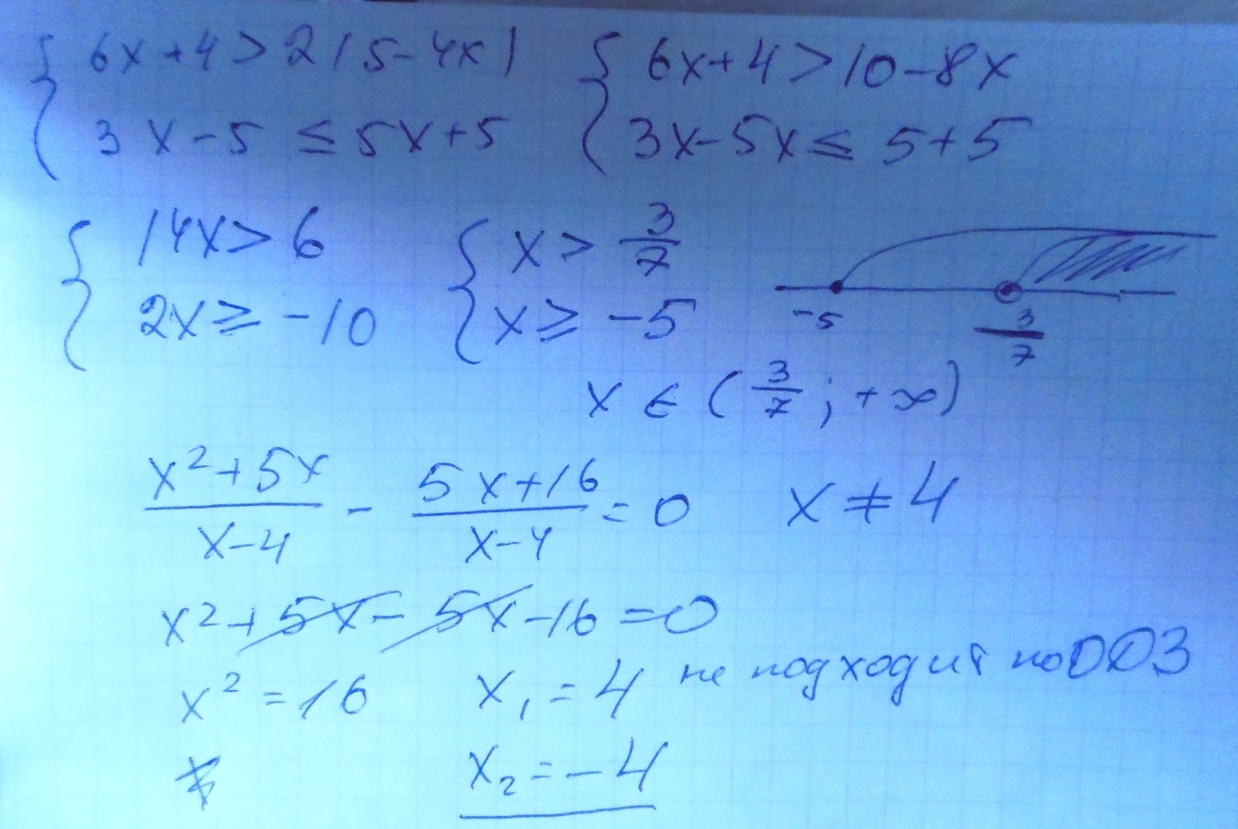 { 6x+4>2(5-4x)   { 6x+4>10-8x
{ 3x-5≤5x+5   { 3x-5x≤5+5
{ 14x>6   { x>3/7
{ 2x≥-10   { x≥-5   -5   3/7
x∈(3/7;+∞)
(x²+5x)/(x-4) - (5x+16)/(x-4) = 0   x≠4
x²+5x-5x-16=0
x²=16   x₁=4 не подходит по ОДЗ
x   x₂=-4